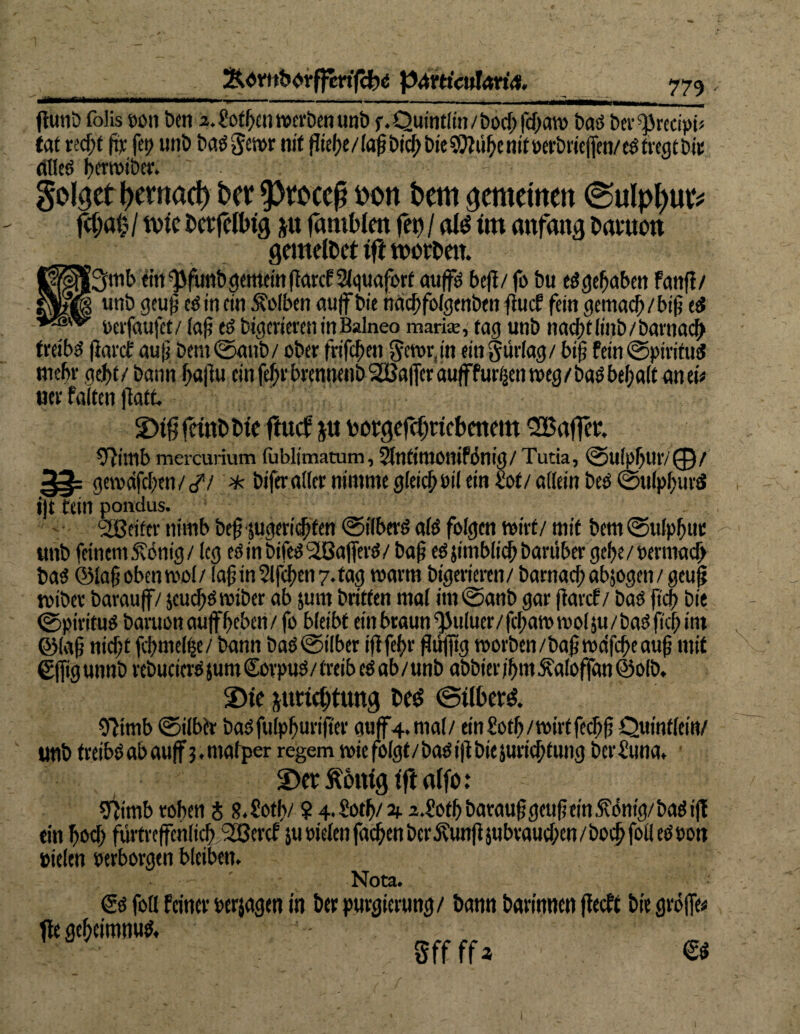 Körnbörfferische Particularia. 779
stund solis von den 2. Lothen werden und 5. Quintlin / doch schaw das der Precipi⸗
tat recht fix sey und das Fewr nit fliehe / laß dich die Mühe nit verdriessen / es tregt dir
alles herwider.
Folget hernach der Proceß von dem gemeinen Sulphur⸗
schatz / wie derselbig zu samblen sey / als im anfang daruon
gemeldet ist worden.
NImb ein Pfund gemein starck Aquafort auffs best / so du es gehaben kanst /
und geuß es in ein Kolben auff die nachfolgenden stuck fein gemach / biß es
versauset / laß es digerieren in Balneo mariæ, tag und nacht lind / darnach
treibs starck auß dem Sand / oder frischen Fewr, in ein Fürlag / biß kein Spiritus
mehr geht / dann hastu ein sehr brennend Wasser auff kurtzen weg / das behalt an ei⸗
ner kalten statt.
Diß seind die stuck zu vorgeschriebenem Wasser.
Nimb mercurium sublimatum, Antimonikönig / Tutia, Sulphur / 🜕 /
gewäschen / ♂ / ⚹ diser aller nimme gleich vil ein Lot / allein des Sulphurs
ist kein pondus.
Weiter nimb deß zugerichten Silbers als folgen wirt / mit dem Sulphur
und seinem König / leg es in dises Wassers / daß es zimblich darüber gehe / vermach
das Glaß oben wol / laß in Aschen 7. tag warm digerieren / darnach abzogen / geuß
wider darauff / zeuchs wider ab zum dritten mal im Sand gar starck / das sich die
Spiritus daruon auffheben / so bleibt ein braun Puluer / schaw wol zu / das sich im
Glaß nicht schmeltze / dann das Silber ist sehr flüssig worden / daß wäsche auß mit
Essig unnd reduciers zum Corpus / treib es ab / und abdier ihm Kaloffan Gold.
Die zurichtung des Silbers.
Nimb Silber das sulphurister auff 4. mal / ein Loth / wirt sechß Quintlein /
und treibs ab auff 3. mal per regem wie folgt / das ist die zurichtung der Luna.
Der König ist also:
Nimb rohen ♁ 8. Loth / ♀ 4. Loth / ♃ 2. Loth darauß geuß ein König / das ist
ein hoch fürtreffenlich Werck zu vielen sachen der Kunst zubrauchen / doch soll es von
vielen verborgen bleiben.
Nota.
Es soll keiner verzagen in der purgierung / dann darinnen steckt die grösse⸗
ste geheimnus.
Fff ff 2 Es